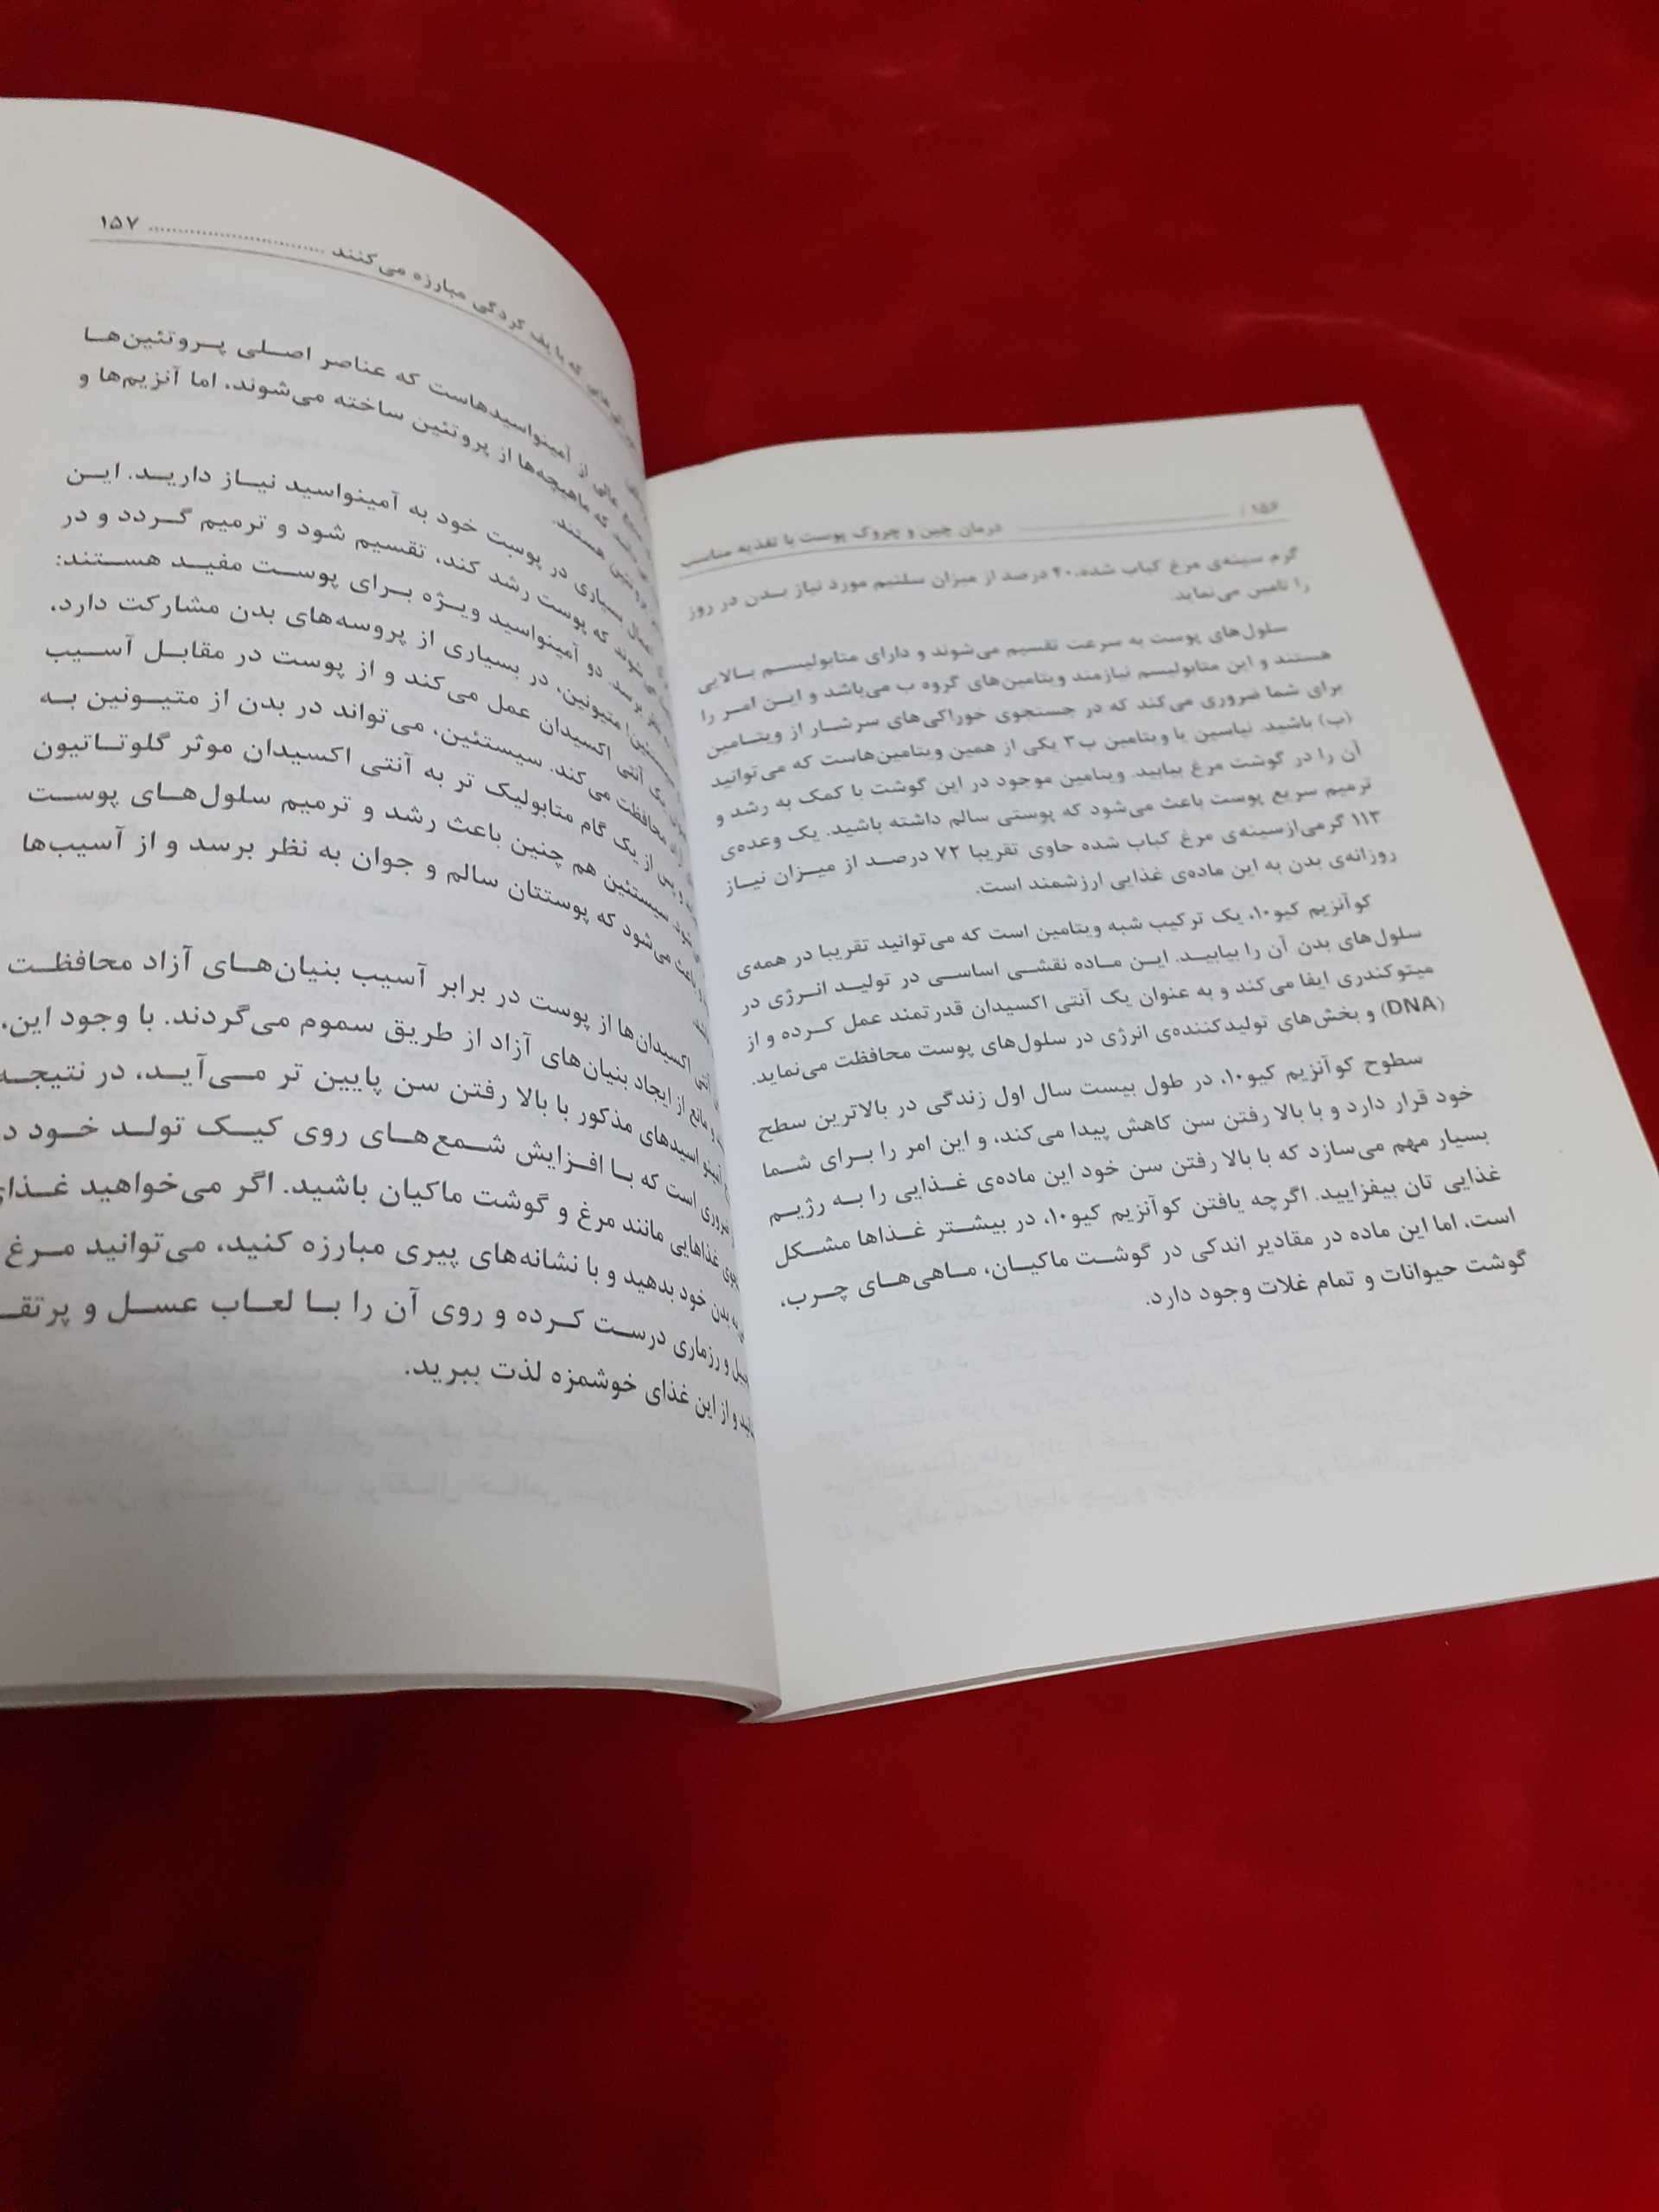 ۱۵۶ / درمان چین و چروک پوست با تغذیه مناسب
گرم سینه‌ی مرغ کباب شده، ۴۰ درصد از میزان سلنیم مورد نیاز بدن در روز
را تامین می‌نماید.
سلول‌های پوست به سرعت تقسیم می‌شوند و دارای متابولیسم بالایی
هستند و این متابولیسم نیازمند ویتامین‌های گروه ب می‌باشد و این امر را
برای شما ضروری می‌کند که در جستجوی خوراکی‌های سرشار از ویتامین
(ب) باشید. نیاسین یا ویتامین ب۳ یکی از همین ویتامین‌هاست که می‌توانید
آن را در گوشت مرغ بیابید. ویتامین موجود در این گوشت با کمک به رشد و
ترمیم سریع پوست باعث می‌شود که پوستی سالم داشته باشید. یک وعده‌ی
۱۱۳ گرمی‌ازسینه‌ی مرغ کباب شده حاوی تقریبا ۷۲ درصد از میزان نیاز
روزانه‌ی بدن به این ماده‌ی غذایی ارزشمند است.
کوآنزیم کیو۱۰، یک ترکیب شبه ویتامین است که می‌توانید تقریبا در همه‌ی
سلول‌های بدن آن را بیابید. این ماده نقشی اساسی در تولید انرژی در
میتوکندری ایفا می‌کند و به عنوان یک آنتی اکسیدان قدرتمند عمل کرده و از
(DNA) و بخش‌های تولیدکننده‌ی انرژی در سلول‌های پوست محافظت می‌نماید.
سطوح کوآنزیم کیو۱۰، در طول بیست سال اول زندگی در بالاترین سطح
خود قرار دارد و با بالا رفتن سن کاهش پیدا می‌کند، و این امر را برای شما
بسیار مهم می‌سازد که با بالا رفتن سن خود این ماده‌ی غذایی را به رژیم
غذایی تان بیفزایید. اگرچه یافتن کوآنزیم کیو۱۰، در بیشتر غذاها مشکل
است، اما این ماده در مقادیر اندکی در گوشت ماکیان، ماهی‌های چرب،
گوشت حیوانات و تمام غلات وجود دارد.
که با پف کردگی مبارزه می‌کنند ۱۵۷
عالی از آمینواسیدهاست که عناصر اصلی پروتئین‌ها
که ماهیچه‌ها از پروتئین ساخته می‌شوند، اما آنزیم‌ها و
هستند.
بسیاری در پوست خود به آمینواسید نیاز دارید. این
شوند که پوست رشد کند، تقسیم شود و ترمیم گردد و در
برسد. دو آمینواسید ویژه برای پوست مفید هستند:
متیونین، در بسیاری از پروسه‌های بدن مشارکت دارد،
یک آنتی اکسیدان عمل می‌کند و از پوست در مقابل آسیب
محافظت می‌کند. سیستئین، می‌تواند در بدن از متیونین به
پس از یک گام متابولیک تر به آنتی اکسیدان موثر گلوتاتیون
سیستئین هم چنین باعث رشد و ترمیم سلول‌های پوست
باعث می‌شود که پوستتان سالم و جوان به نظر برسد و از آسیب‌ها
آنتی اکسیدان‌ها از پوست در برابر آسیب بنیان‌های آزاد محافظت
و مانع از ایجاد بنیان‌های آزاد از طریق سموم می‌گردند. با وجود این،
اسیدهای مذکور با بالا رفتن سن پایین تر می‌آید، در نتیجه
ضروری است که با افزایش شمع‌های روی کیک تولد خود
غذاهایی مانند مرغ و گوشت ماکیان باشید. اگر می‌خواهید
به بدن خود بدهید و با نشانه‌های پیری مبارزه کنید، می‌توانید مرغ
و رزماری درست کرده و روی آن را با لعاب عسل و
و از این غذای خوشمزه لذت ببرید.